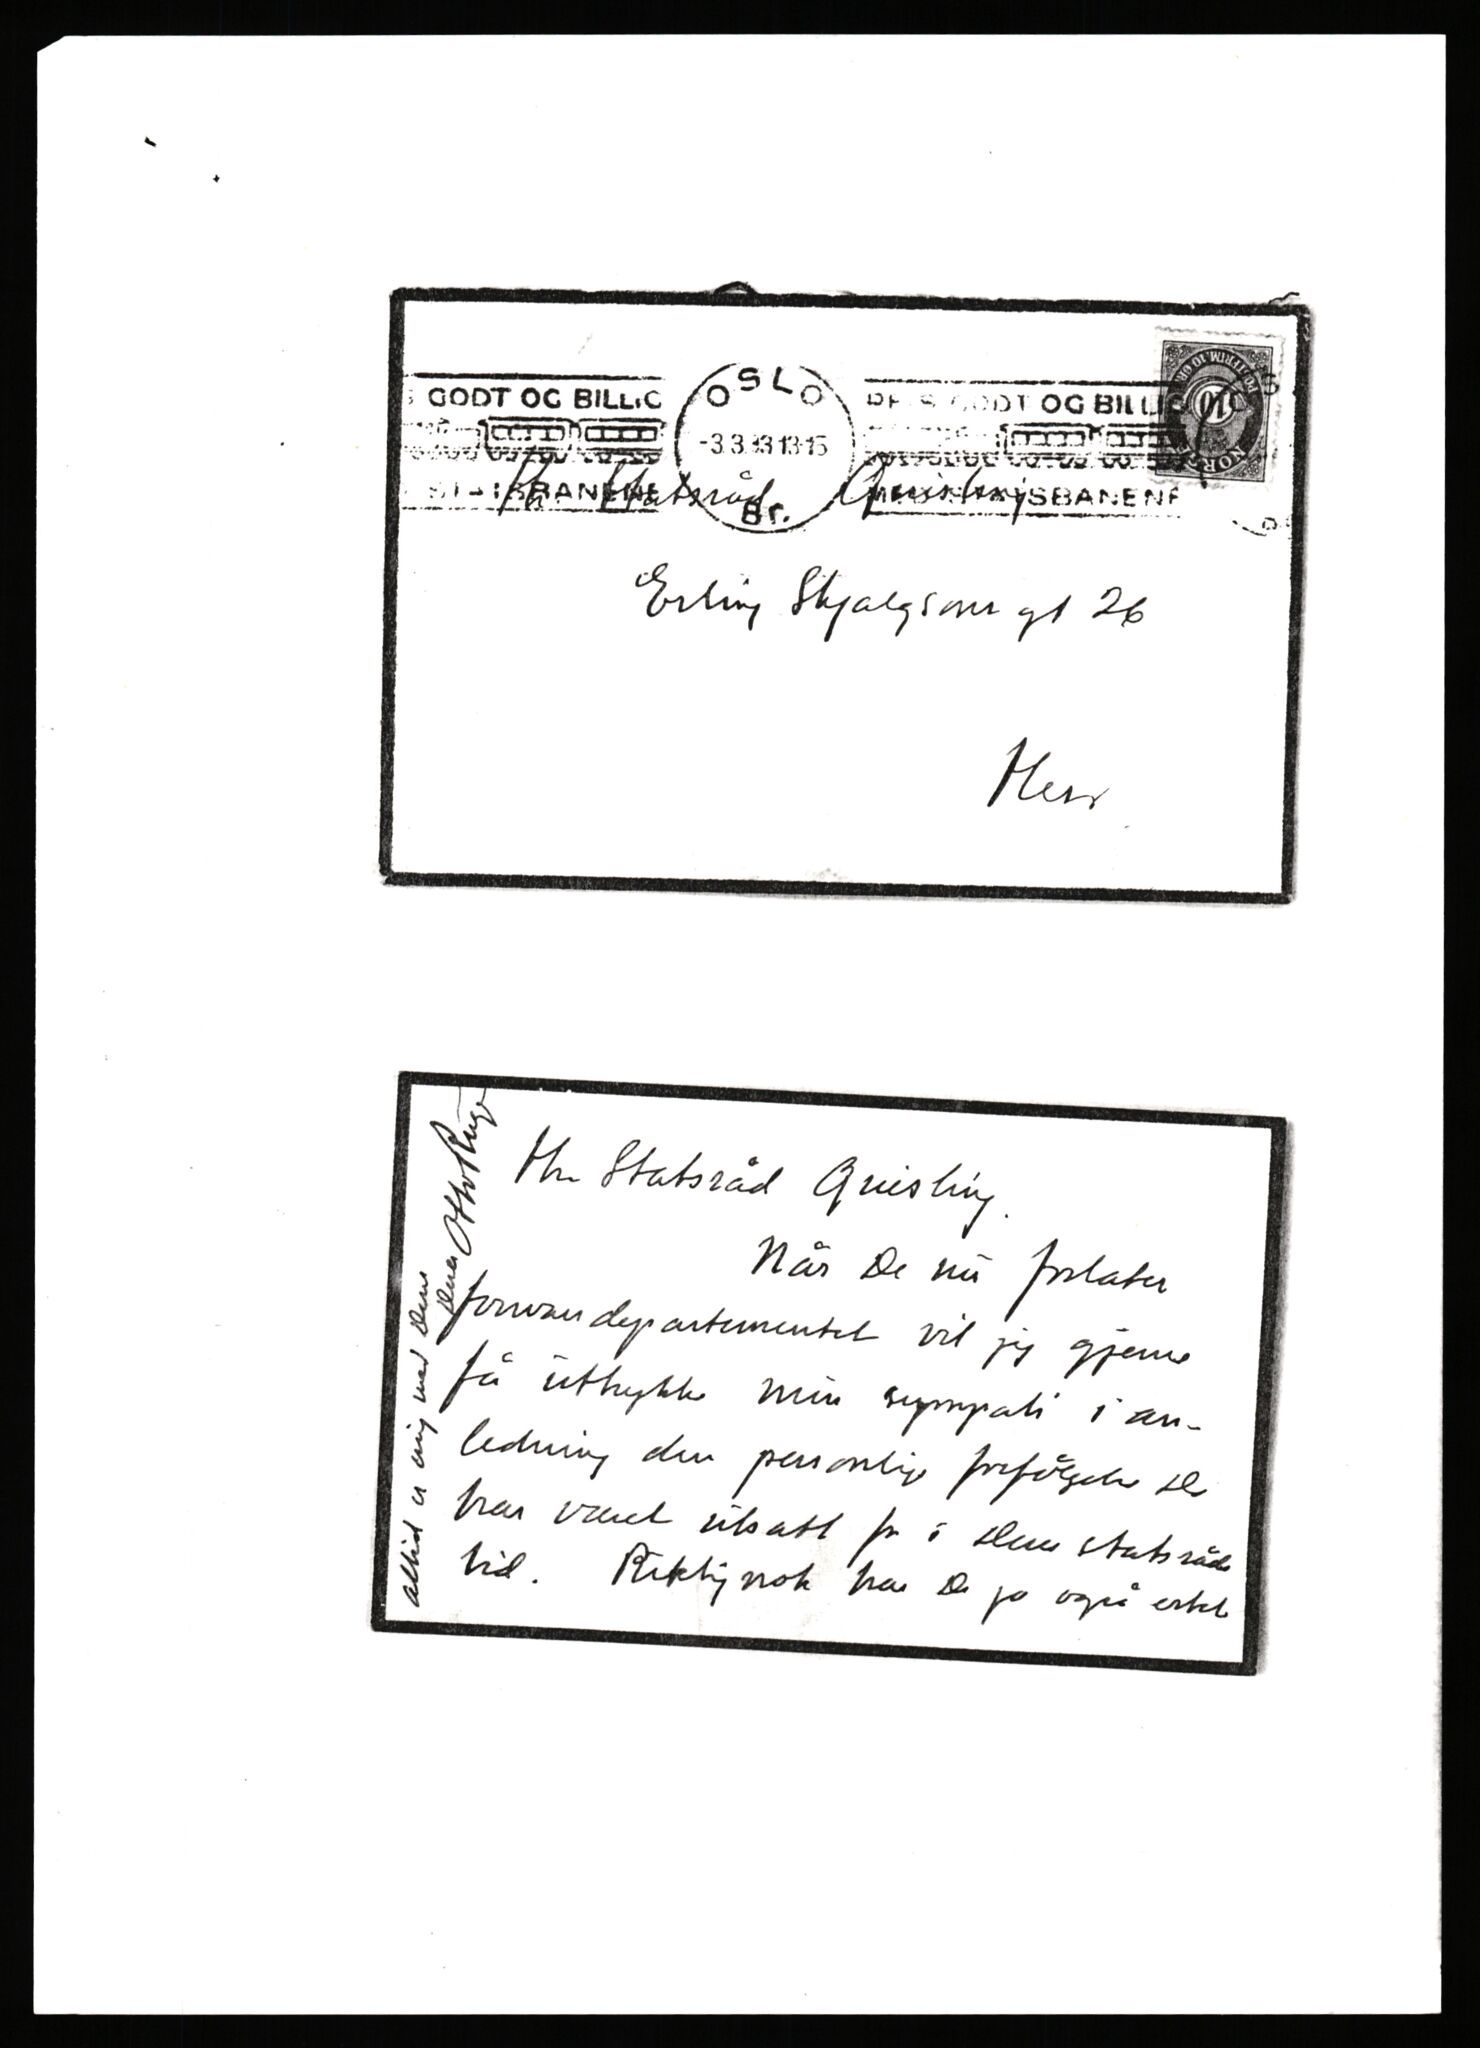 GODT OG BILLIG
STATSBANENE
OSLO
-3.3.33.13-15
Br.
REIS GODT OG BILLIG
MED STATSBANENE
NORGE
10
Hr. Statsråd Quisling
Erling Skjalgsons gt 26
Her.
Hr. Statsråd Quisling.
Når De nu forlater
forsvarsdepartementet vil jeg gjerne
få uttrykke min sympati i an-
ledning den personlige forfølgelse De
har været utsatt for i Deres statsråds
tid. Riktignok har De jo også
alltid er enig med Dem
Deres
Otto Ruge